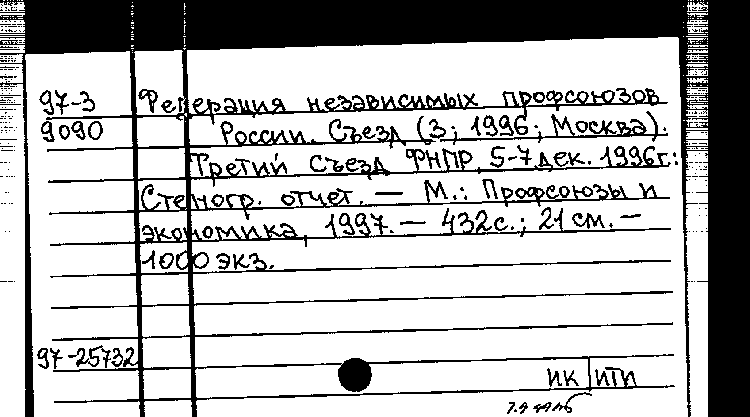 97-3 Федерация независимых профсоюзов
9090 России. Съезд (3; 1996; Москва).
Третий съезд ФНПР, 5-7 дек. 1996г.:
Стеногр. отчет. — М.: Профсоюзы и
экономика, 1997. — 432с.; 21 см. —
1000 экз.
97-25732
ИК ИТИ